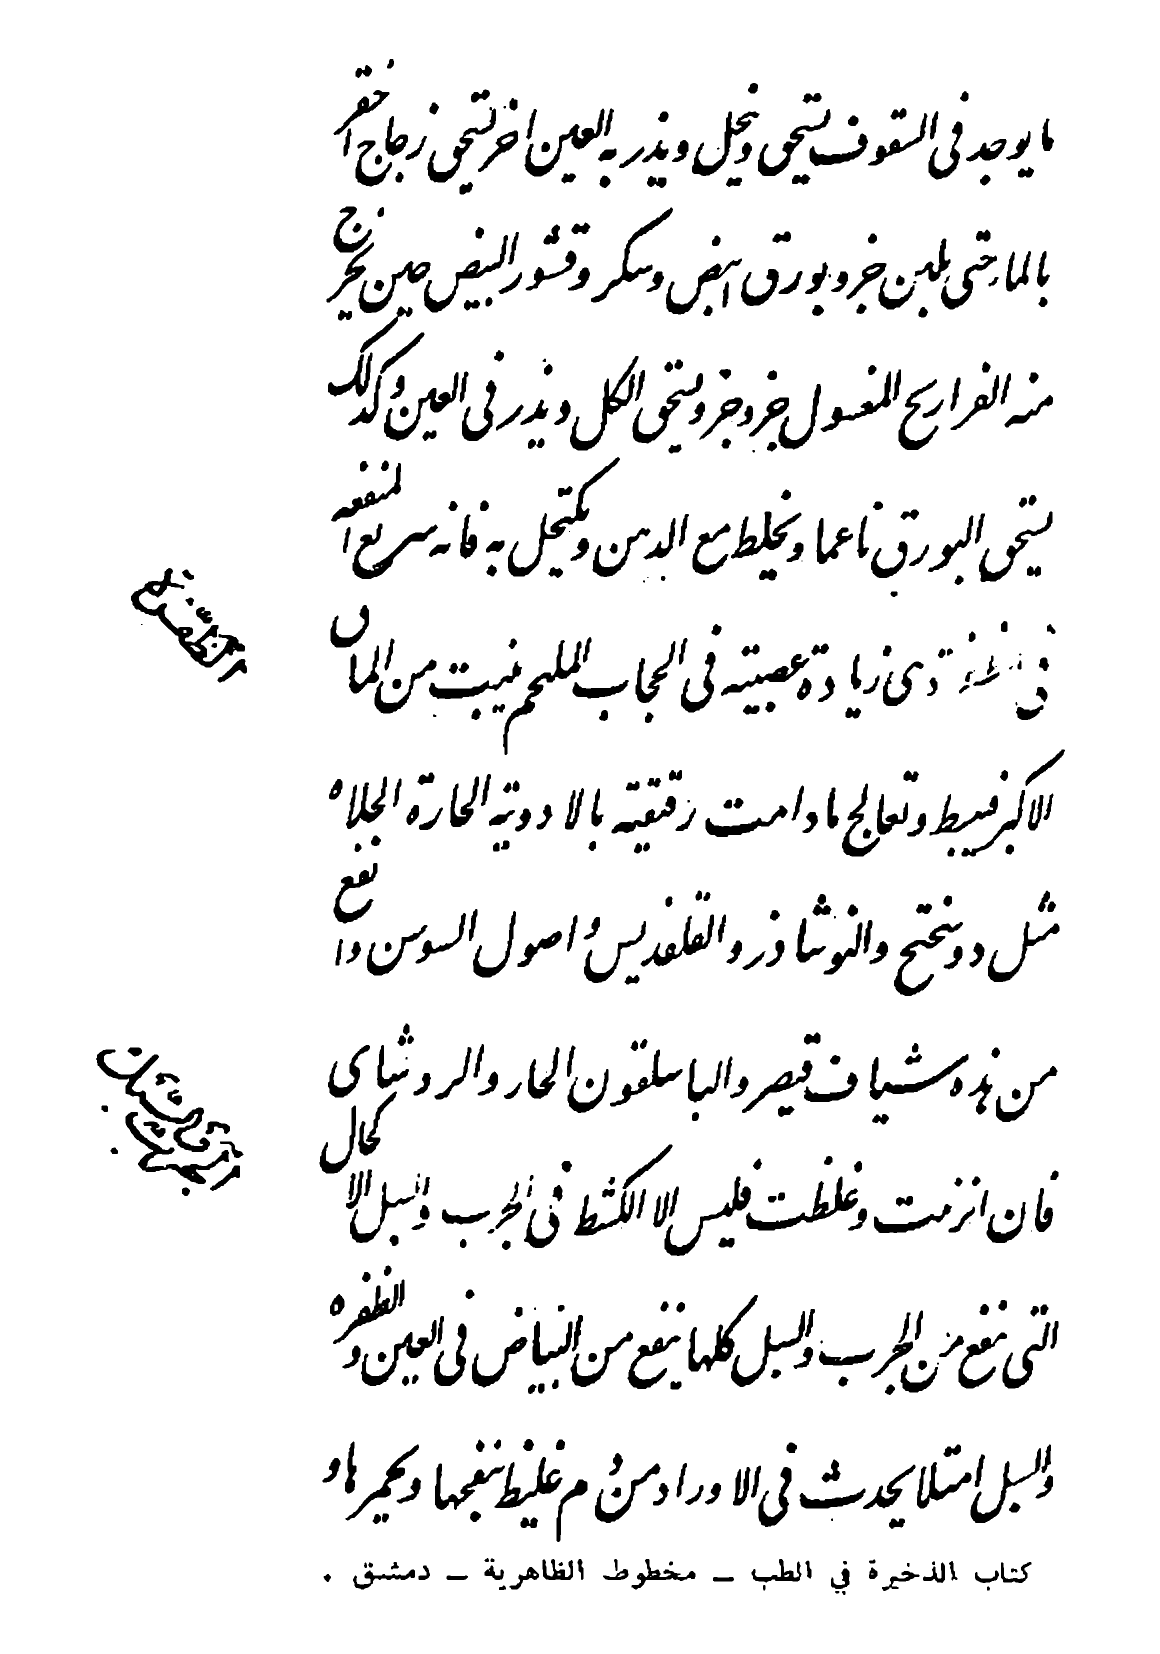 ما يوجد فى السقوف يسحق وينخل ويذر به العين اخر يسحق زجاج اخضر
بالما حتى يلين جزو بورق ابيض وسكر وقشور البيض حين يخرج
منه الفراريج المغسول جزو جزو يسحق الكل ويذر فى العين وكذلك
يسحق البورق ناعما ويخلط مع الدهن ويكتحل به فانه سريع المنفعه
الظفرة
فى الظفرة هى زيادة عصبية فى الحجاب الملتحم ينبت من الماق
الاكبر فيبسط وتعالج مادامت رقيقة بالادوية الحارة الجلاه
مثل والنوشاذر والقلقديس واصول السوسن وانفع
من هذه شياف قيصر والباسلقون الحار والروشناى
فان ازمنت وغلظت فليس الا الكشط فى الجرب والسبل الاكحال
التى تنفع من الجرب والسبل كلها ينفع من البياض فى العين والظفره
والسبل امتلا يحدث فى الاوراد من دم غليظ ينفخها ويحمرها و
كتاب الذخيرة في الطب – مخطوط الظاهرية – دمشق .